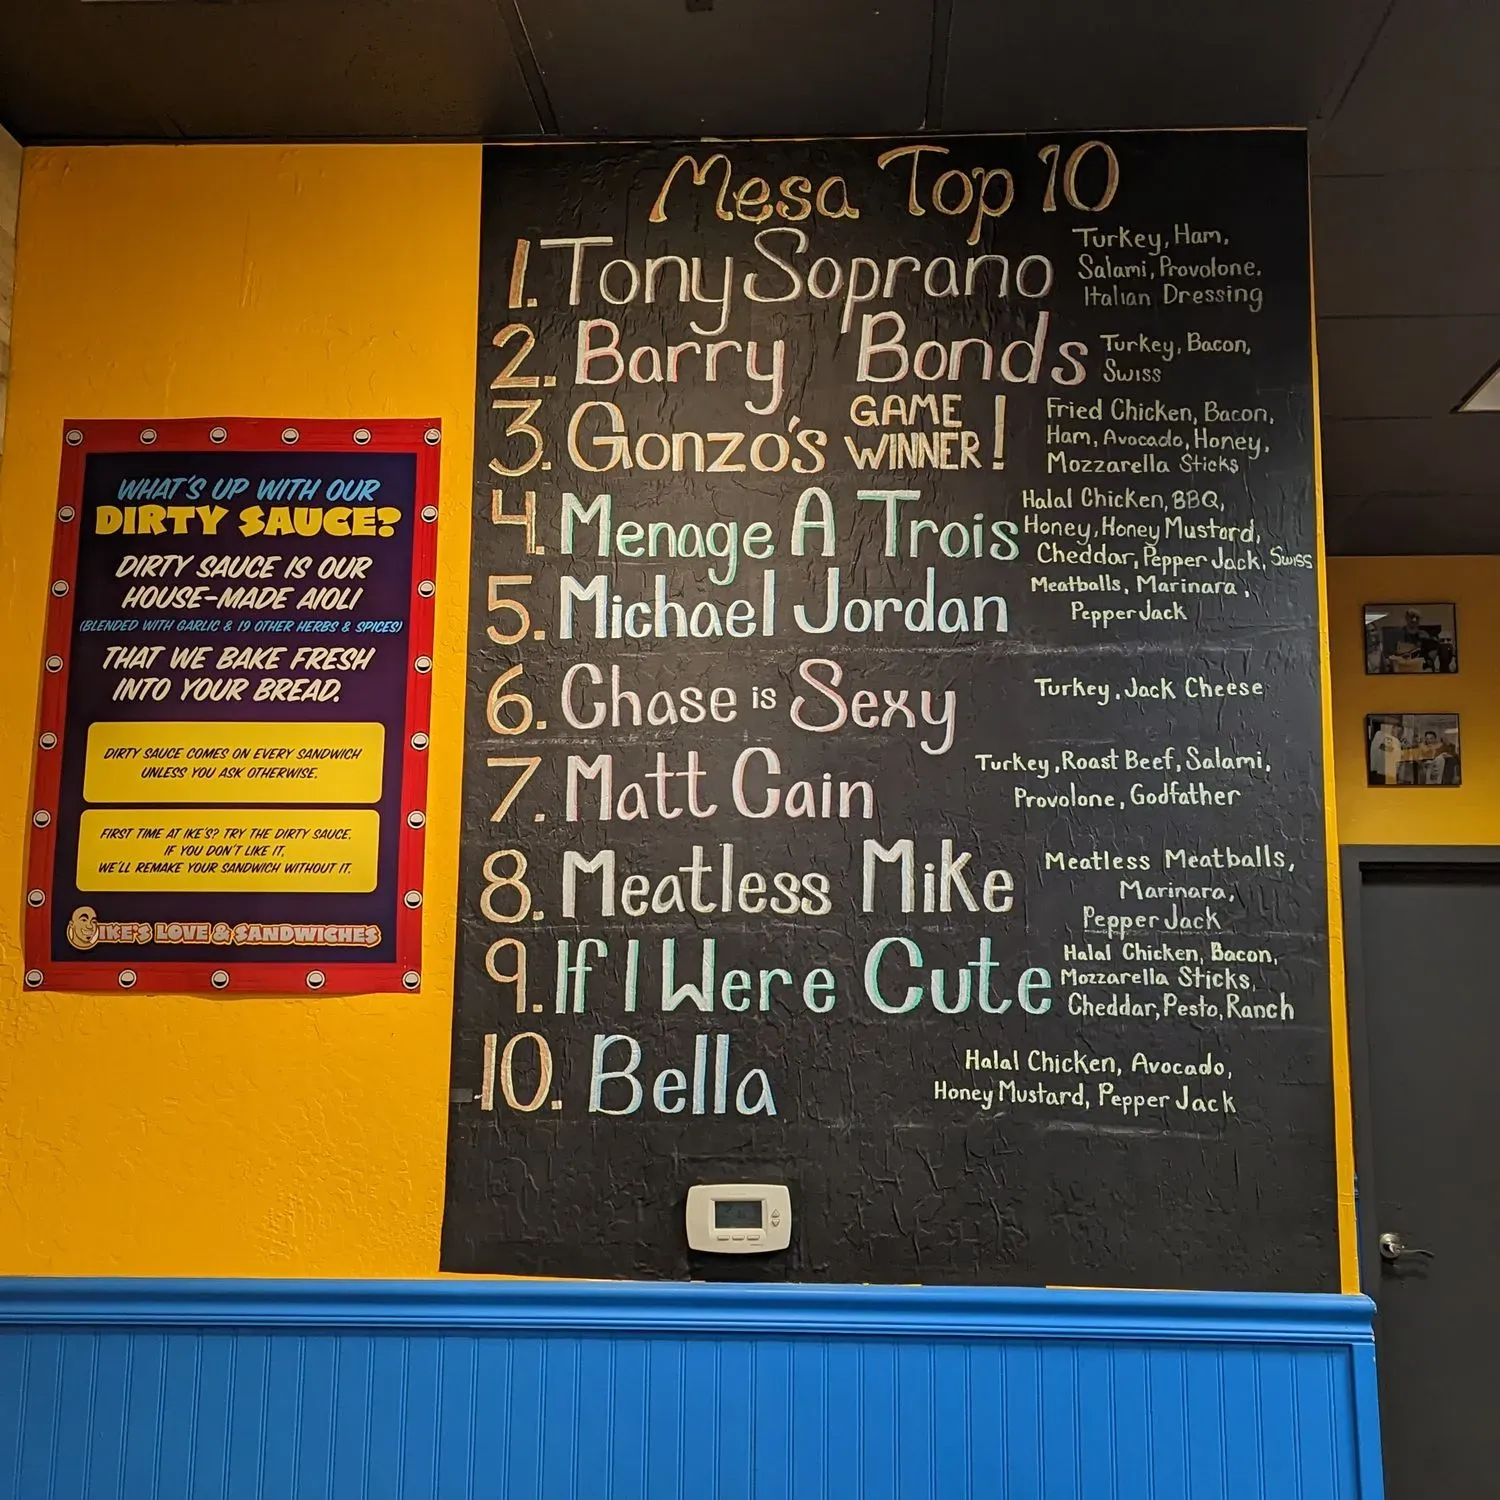 WHAT'S UP WITH OUR
DIRTY SAUCE?
DIRTY SAUCE IS OUR
HOUSE-MADE AIOLI
(BLENDED WITH GARLIC & 19 OTHER HERBS & SPICES)
THAT WE BAKE FRESH
INTO YOUR BREAD.
DIRTY SAUCE COMES ON EVERY SANDWICH
UNLESS YOU ASK OTHERWISE.
FIRST TIME AT IKE'S? TRY THE DIRTY SAUCE.
IF YOU DON'T LIKE IT,
WE'LL REMAKE YOUR SANDWICH WITHOUT IT.
IKE'S LOVE & SANDWICHES
Mesa Top 10
1. Tony Soprano
Turkey, Ham,
Salami, Provolone,
Italian Dressing
2. Barry Bonds
Turkey, Bacon,
Swiss
3. Gonzo's GAME WINNER!
Fried Chicken, Bacon,
Ham, Avocado, Honey,
Mozzarella Sticks
4. Menage A Trois
Halal Chicken, BBQ,
Honey, Honey Mustard,
Cheddar, Pepper Jack, Swiss
5. Michael Jordan
Meatballs, Marinara,
Pepper Jack
6. Chase is Sexy
Turkey, Jack Cheese
7. Matt Cain
Turkey, Roast Beef, Salami,
Provolone, Godfather
8. Meatless Mike
Meatless Meatballs,
Marinara,
Pepper Jack
9. If I Were Cute
Halal Chicken, Bacon,
Mozzarella Sticks,
Cheddar, Pesto, Ranch
10. Bella
Halal Chicken, Avocado,
Honey Mustard, Pepper Jack